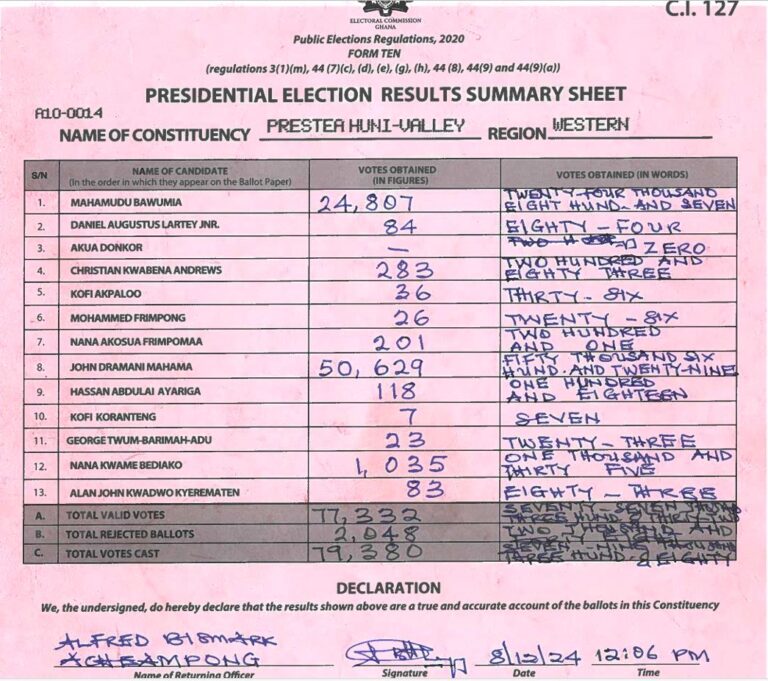 C.I. 127
ELECTORAL COMMISSION
GHANA
Public Elections Regulations, 2020
FORM TEN
(regulations 3(1)(m), 44 (7)(c), (d), (e), (g), (h), 44 (8), 44(9) and 44(9)(a))
PRESIDENTIAL ELECTION RESULTS SUMMARY SHEET
A10-0014
NAME OF CONSTITUENCY PRESTEA HUNI-VALLEY REGION WESTERN
S/N NAME OF CANDIDATE (In the order in which they appear on the Ballot Paper) VOTES OBTAINED (IN FIGURES) VOTES OBTAINED (IN WORDS)
1. MAHAMUDU BAWUMIA 24,807 TWENTY-FOUR THOUSAND EIGHT HUND-AND SEVEN
2. DANIEL AUGUSTUS LARTEY JNR. 84 EIGHTY-FOUR
3. AKUA DONKOR — ZERO
4. CHRISTIAN KWABENA ANDREWS 283 TWO HUNDRED AND EIGHTY THREE
5. KOFI AKPALOO 36 THIRTY-SIX
6. MOHAMMED FRIMPONG 26 TWENTY-SIX
7. NANA AKOSUA FRIMPOMAA 201 TWO HUNDRED AND ONE
8. JOHN DRAMANI MAHAMA 50,629 FIFTY THOUSAND SIX HUND-AND TWENTY-NINE
9. HASSAN ABDULAI AYARIGA 118 ONE HUNDRED AND EIGHTEEN
10. KOFI KORANTENG 7 SEVEN
11. GEORGE TWUM-BARIMAH-ADU 23 TWENTY-THREE
12. NANA KWAME BEDIAKO 1,035 ONE THOUSAND AND THIRTY FIVE
13. ALAN JOHN KWADWO KYEREMATEN 83 EIGHTY-THREE
A. TOTAL VALID VOTES 77,332 SEVENTY-SEVEN THREE HUND THIRTY TWO
B. TOTAL REJECTED BALLOTS 2,048 TWO THOUSAND AND EIGHT
C. TOTAL VOTES CAST 79,380 THREE HUND & EIGHTY
DECLARATION
We, the undersigned, do hereby declare that the results shown above are a true and accurate account of the ballots in this Constituency
ALFRED BISMARK
ACHEAMPONG 8/12/24 12:06 PM
Name of Returning Officer Signature Date Time